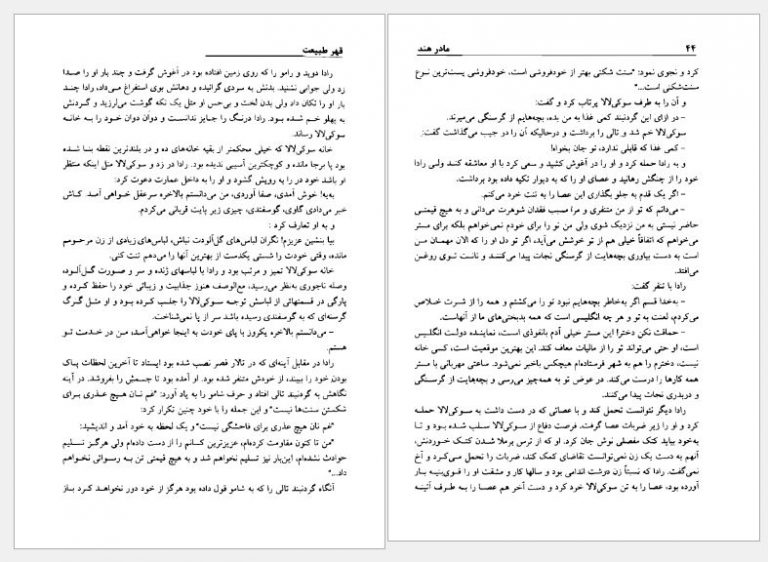 ۴۴ مادر هند
کرد و نجوی نمود: "سنت شکنی بهتر از خودفروشی است. خودفروشی پست‌ترین نوع
سنت‌شکنی است..."
و آن را به طرف سوکی‌لالا پرتاب کرد و گفت:
– در ازای این گردنبند کمی غذا به من بده، بچه‌هایم از گرسنگی می‌میرند.
سوکی‌لالا خم شد و تالی را برداشت و درحالیکه آن را در جیب می‌گذاشت گفت:
– کمی غذا که قابلی ندارد، تو جان بخواه!
و به رادا حمله کرد و او را در آغوش کشید و سعی کرد با او معانقه کند ولی رادا
خود را از چنگش رهانید و عصای او را که به دیوار تکیه داده بود برداشت.
– اگر یک قدم به جلو بگذاری این عصا را به تنت خرد می‌کنم.
– می‌دانم که تو از من متنفری و مرا مسبب فقدان شوهرت می‌دانی و به هیچ قیمتی
حاضر نیستی به من نزدیک شوی ولی من تو را برای خودم نمی‌خواهم بلکه برای مستر
می‌خواهم که اتفاقاً خیلی هم از تو خوشش می‌آید، اگر تو دل او را که الان مهمان من
است به دست بیاوری بچه‌هایت از گرسنگی نجات پیدا می‌کنند و نانت توی روغن
می‌افتد.
رادا با تنفر گفت:
– به‌خدا قسم اگر به‌خاطر بچه‌هایم نبود تو را می‌کشتم و همه را از شرت خلاص
می‌کردم، لعنت به تو و هر چه انگلیسی است که همه بدبختی‌های ما از آنهاست.
– حماقت نکن دختر! این مستر خیلی آدم بانفوذی است، نماینده دولت انگلیس
است، او حتی می‌تواند تو را از مالیات معاف کند. این بهترین موقعیت است، کسی خانه
نیست، دخترم را هم به شهر فرستاده‌ام هیچکس باخبر نمی‌شود. ساعتی مهربانی با مستر
همه کارها را درست می‌کند. در عوض تو به همه‌چیز می‌رسی و بچه‌هایت از گرسنگی
و دربدری نجات پیدا می‌کنند.
رادا دیگر نتوانست تحمل کند و با عصائی که در دست داشت به سوکی‌لالا حمله
کرد و او را زیر ضربات عصا گرفت. فرصت دفاع از سوکی‌لالا سلب شده بود و تا
به‌خود بیاید کتک مفصلی نوش جان کرد. او که از ترس برملا شدن کتک خوردنش،
آنهم به دست یک زن نمی‌توانست تقاضای کمک کند، ضربات را تحمل می‌کرد و آخ
نمی‌گفت. رادا که نسبتاً زن درشت اندامی بود و سالها کار و مشقت او را قوی‌بنیه بار
آورده بود، عصا را به تن سوکی‌لالا خود کرد و دست آخر هم عصا را به طرف آئینه
قهر طبیعت
رادا دوید و رامو را که روی زمین افتاده بود در آغوش گرفت و چند بار او را صدا
زد ولی جوابی نشنید. بدنش به سردی گرائیده و دهانش بوی استفراغ می‌داد، رادا چند
بار او را تکان داد ولی بدن لخت و بی‌حس او مثل یک تکه گوشت می‌لرزید و گردنش
به پهلو خم شده بود. رادا درنگ را جایز ندانست و دوان دوان خود را به خانه
سوکی‌لالا رساند.
خانه سوکی‌لالا که خیلی محکمتر از بقیه خانه‌های ده و در بلندترین نقطه بنا شده
بود پا برجا مانده و کوچکترین آسیبی ندیده بود. رادا در زد و سوکی‌لالا مثل اینکه منتظر
او باشد خود در را به رویش گشود و او را به داخل عمارت دعوت کرد:
به‌به! خوش آمدی، صفا آوردی، من می‌دانستم بالاخره سرعقل خواهی آمد. کاش
خبر می‌دادی گاوی، گوسفندی، چیزی زیر پایت قربانی می‌کردم.
و به او تعارف کرد :
بیا بنشین عزیزم! نگران لباس‌های گل‌آلودت نباش، لباس‌های زیادی از زن مرحومم
مانده، وقتی خودت را شستی یکدست از بهترین آنها را می‌دهم تنت کنی.
خانه سوکی‌لالا تمیز و مرتب بود و رادا با لباسهای ژنده و سر و صورت گل‌آلود،
وصله ناجوری به‌نظر می‌رسید، مع‌الوصف هنوز جذابیت و زیبائی خود را حفظ کرده و
پارگی در قسمتهائی از لباسش توجه سوکی‌لالا را جلب کرده بود و او مثل گرگ
گرسنه‌ای که به گوسفندی رسیده باشد سر از پا نمی‌شناخت.
– می‌دانستم بالاخره یکروز با پای خودت به اینجا خواهی‌آمد، من در خدمت تو
هستم.
رادا در مقابل آینه‌ای که در تالار قصر نصب شده بود ایستاد تا آخرین لحظات پاک
بودن خود را ببیند، از خودش متنفر شده بود. او آمده بود تا جسمش را بفروشد. در آینه
نگاهش به گردنبند تالی افتاد و حرف شامو را به یاد آورد: "غم نان هیچ عذری برای
شکستن سنت‌ها نیست" و این جمله را با خود چنین تکرار کرد:
"غم نان هیچ عذری برای فاحشگی نیست" و یک لحظه به خود آمد و اندیشید:
"من تا کنون مقاومت کرده‌ام، عزیزترین کسانم را از دست داده‌ام ولی هرگز تسلیم
حوادث نشده‌ام، این‌بار نیز تسلیم نخواهم شد و به هیچ قیمتی تن به رسوائی نخواهم
داد..."
آنگاه گردنبند تالی را که به شامو قول داده بود هرگز از خود دور نخواهد کرد باز